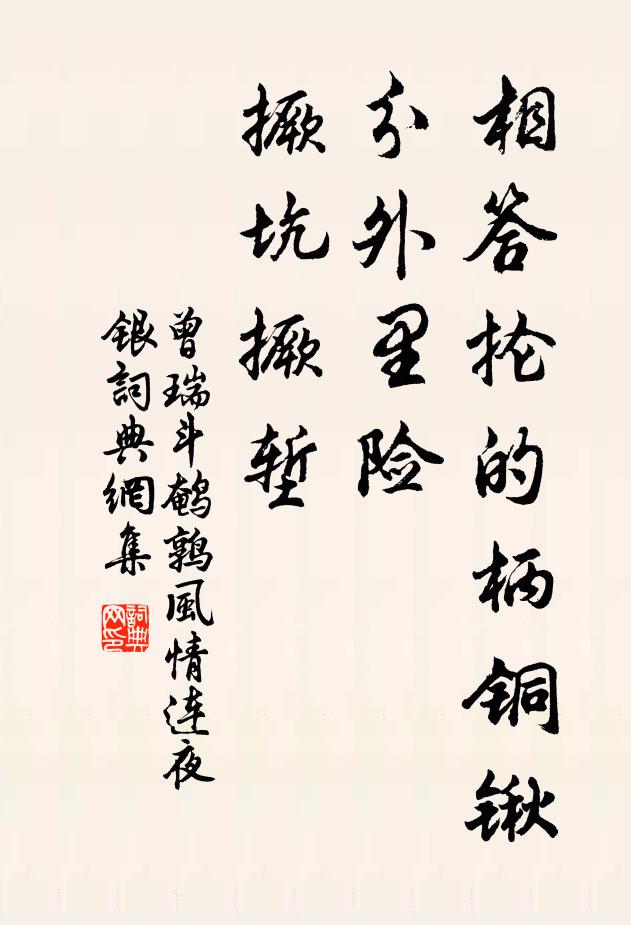 相答抡的柄铜锹
分外里险
撅坑撅堑
曾瑞斗鹌鹑風情连夜
银詞典網集
詞典
网印